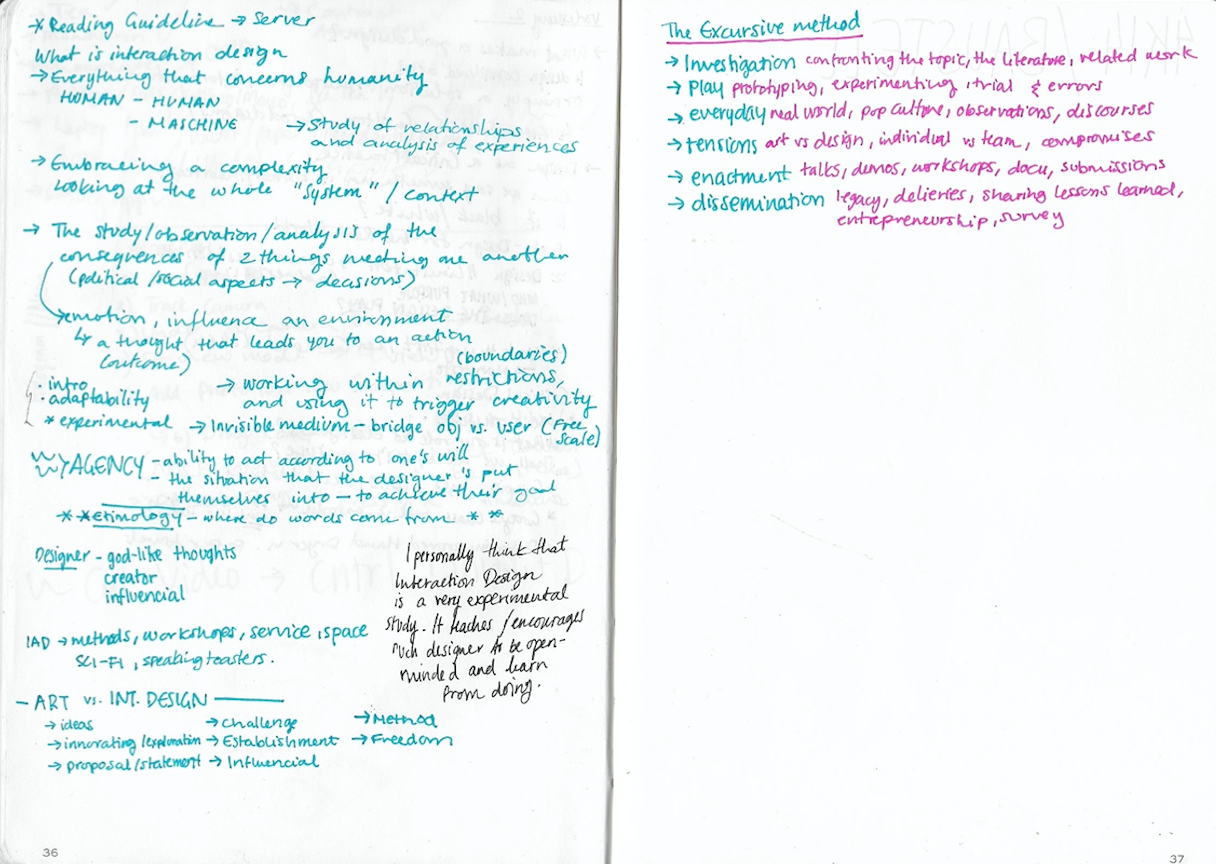 * Reading Guideline → Server
What is interaction design
→ Everything that concerns humanity
HUMAN - HUMAN
- MASCHINE
→ Study of relationships
and analysis of experiences
→ Embracing a complexity
Looking at the whole "System" / context
→ The study/observation/analysis of the
consequences of 2 things meeting one another
(political/social aspects → decasions)
→ emotion, influence an environment
↳ a thought that leads you to an action
(outcome)
· intro
· adaptability
* experimental
(boundaries)
→ working within restrictions,
and using it to trigger creativity
→ Invisible medium - bridge obj vs. user (Free
Scale)
AGENCY - ability to act according to one's will
- the sitvation that the designer's put
themselves into - to achieve their goal
* * Etimology - where do words come from * *
Designer - god-like thoughts
creator
influencial
I personally think that
Interaction Design
is a very experimental
study. It teaches/encourages
designer to be open-
minded and learn
from doing.
IAD → methods, workshops, service, space
SCI-FI, speaking toasters.
- ART vs. INT. DESIGN
→ ideas → challenge → Method
→ innovating/exploration → Establishment → Freedom
→ proposal/statement → Influencial
36
The Excursive method
→ Investigation confronting the topic, the literature, related work
→ Play prototyping, experimenting, trial & errors
→ everyday real world, pop culture, observations, discourses
→ tensions art vs design, individual vs team, compromises
→ enactment talks, demos, workshops, docu, submissions
→ dissemination legacy, delieries, sharing lessons learned,
entrepreneurship, survey
37